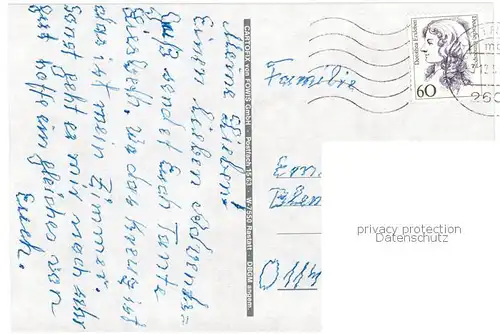 Meine Lieben!
Einen lieben Advents=
Gruß sendet Euch Tante
Elisabeth. Wo das Kreuz ist
das ist mein Zimmer.
Sonst geht es mir noch sehr
gut hoffe ein gleiches von
Euch.
CARTOFIX von FOWIS GmbH · Postfach 1563 · W-7550 Rastatt · DBGM angem.
Familie
Dorothea Erxleben
Deutsche Bundespost
60
Ern
O 114
privacy protection
Datenschutz